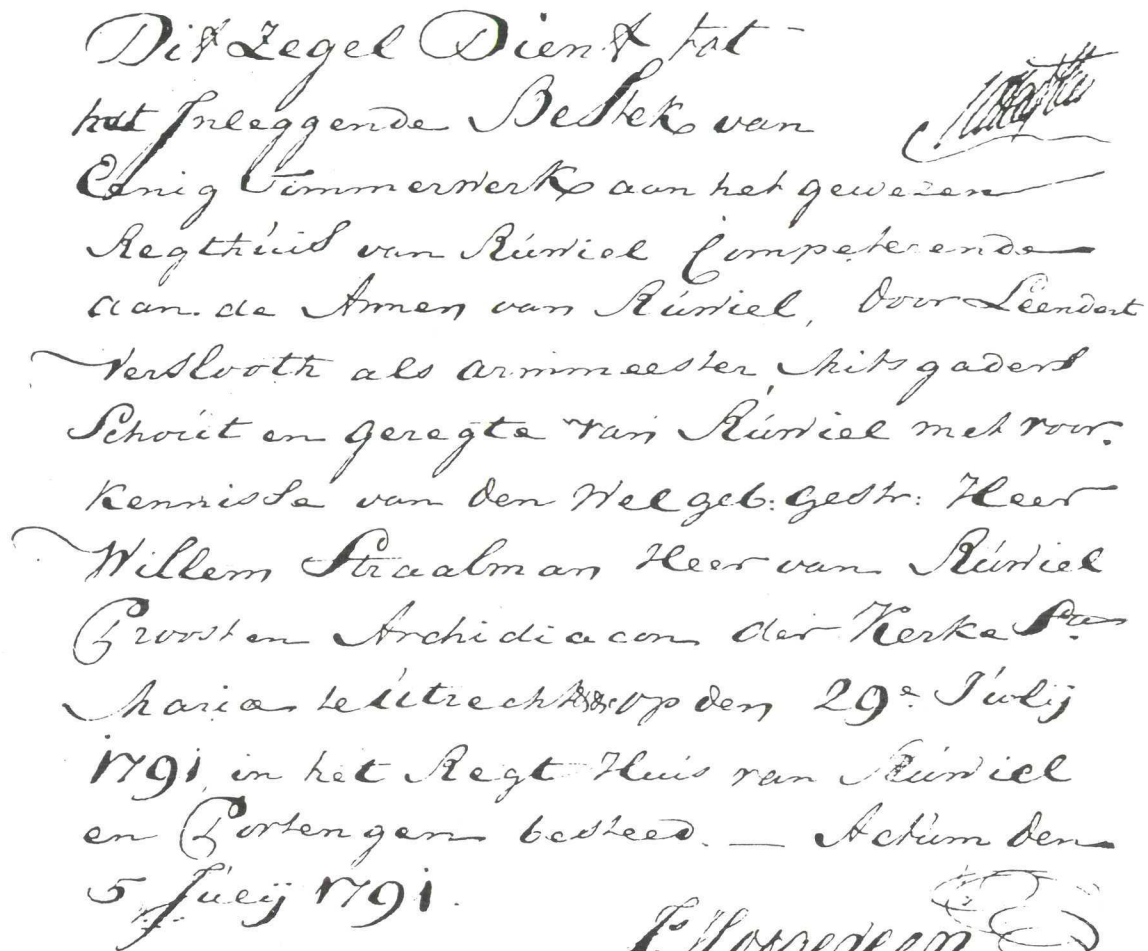 Dit Zegel Dient tot
het Inleggende Bestek van
Eenig Timmerwerk aan het gewezen
Regthúis van Rúwiel Competerende
aan de Armen van Rúwiel, door Leendert
Verslooth als armmeester, mitsgaders
Schoút en geregte van Rúwiel met voor:
kennisse van den Welgeb: gestr: Heer
Willem Straalman Heer van Rúwiel
Proost en Archidiacon der Kerke Sta
Maria te Utrecht op den 29e Júlij
1791 in het Regt Huis van Rúwiel
en Portengen besteed. — Actúm den
5 Júlij 1791.